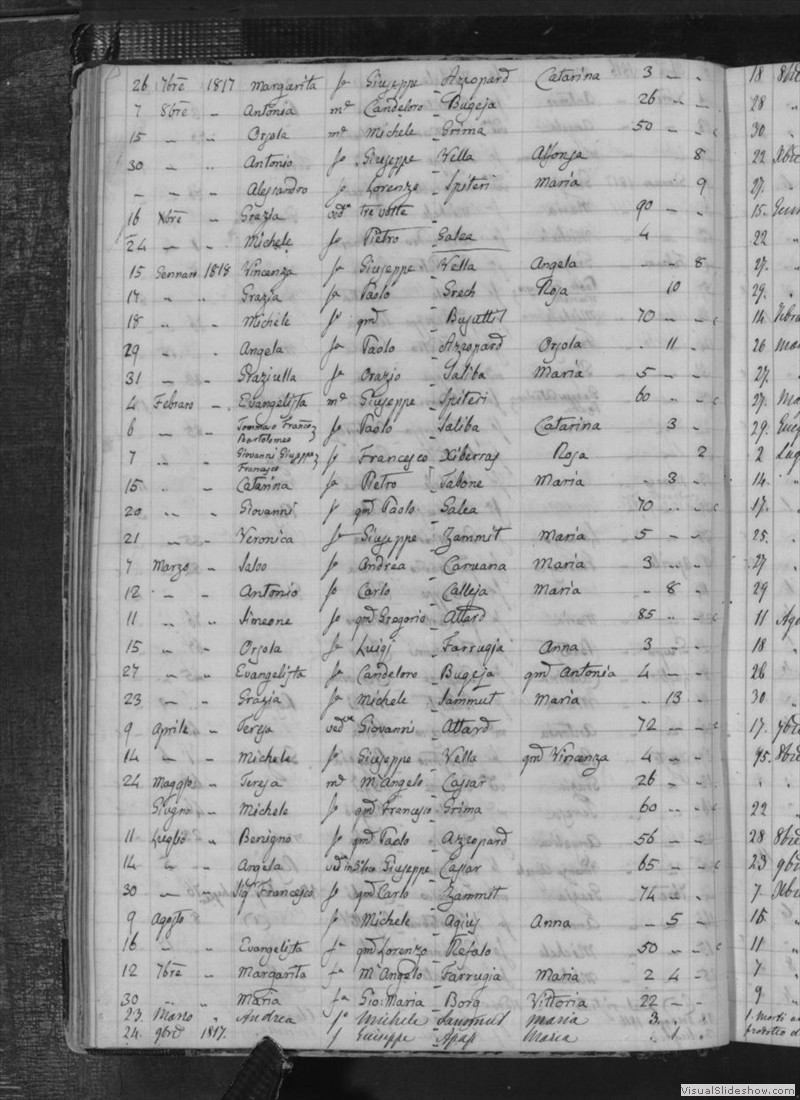 26 7bre 1817 Margarita fa Giuseppe Azzopard Catarina 3 – – 18 8bre
7 8bre – Antonia me Candeloro Bugeja 26 – – 28
15 – – Orsola me Michele Grima 50 – – c 30
30 – – Antonio fo Giuseppe Vella Alfonsa 8 22 Xbre
– – – Alessandro fo Lorenzo Spiteri Maria 9 27.
16 Xbre – Grazia veda tre volte 90 – – 15. Genn
24 – – Michele fo Pietro Galea 4 22
15 Gennaro 1818 Vincenza fa Giuseppe Vella Angela – – 8 27.
17 – – Grazia fa Paolo Grech Rosa 10 29.
18 – – Michele fo qm Busuttil 70 – – c 14 Febra
29 – – Angela fa Paolo Azzopard Orsola . 11 . 26 Mar
31 – – Graziulla fa Orazio Saliba Maria 5 – – 27.
4 Febraro – Evangelista me Giuseppe Spiteri 60 – – c 27. Ma
6 – – Tommaso Franco Bartolomeo fo Paolo Saliba Catarina 3 . 29. Giug
7 – – Giovanni Giuseppe Francesco fo Francesco Xiberras Rosa 2 2 Lug
15 – – Catarina fa Pietro Tabone Maria . 3 . 14.
20 – – Giovanni fo qm Paolo Galea 70 – – c 17.
21 – – Veronica fa Giuseppe Zammit Maria 5 – – 25.
7 Marzo – Salvo fo Andrea Caruana Maria 3 – – 27
12 – – Antonio fo Carlo Calleja Maria – 8 . 29
11 – – Simeone fo qm Gregorio Attard 85 – – c 11 Ago
15 – – Orsola fa Luigi Farrugia Anna 3 – – 18
27 – – Evangelista fa Candeloro Bugeja qm Antonia 4 – – 26
23 – – Grazia fa Michele Sammut Maria . 13 . 30
9 Aprile – Teresa veda Giovanni Attard 72 – – c 17. 7bre
14 – – Michele fo Giuseppe Vella qm Vincenza 4 – – 8bre
24 Maggio – Teresa me M Angelo Cassar 26 – –
Giugno – Michele fo qm Francesco Grima 60 – – c 22
11 Luglio – Benigno fo qm Paolo Azzopard 56 – – 28 8bre
14 – – Angela Giuseppe Cassar 65 – – c 23 9bre
30 – – Sigr Francesco fo qm Carlo Zammit 74 – – 7 Xbre
9 Agosto – fo Michele Agius Anna – 5 – 15.
16 – – Evangelista fa qm Lorenzo Refalo 50 – – c 11
12 7bre – Margarita fa M Angelo Farrugia Maria 2 4 – 7
30 – – Maria fa Gio: Maria Borg Vittoria 22 – – 9
23. Marzo – Andrea fo Michele Sammut Maria 3. 1. Morti
24. 9bre 1817. f Giuseppe Apap Maria . 1 .
VisualSlideshow.com